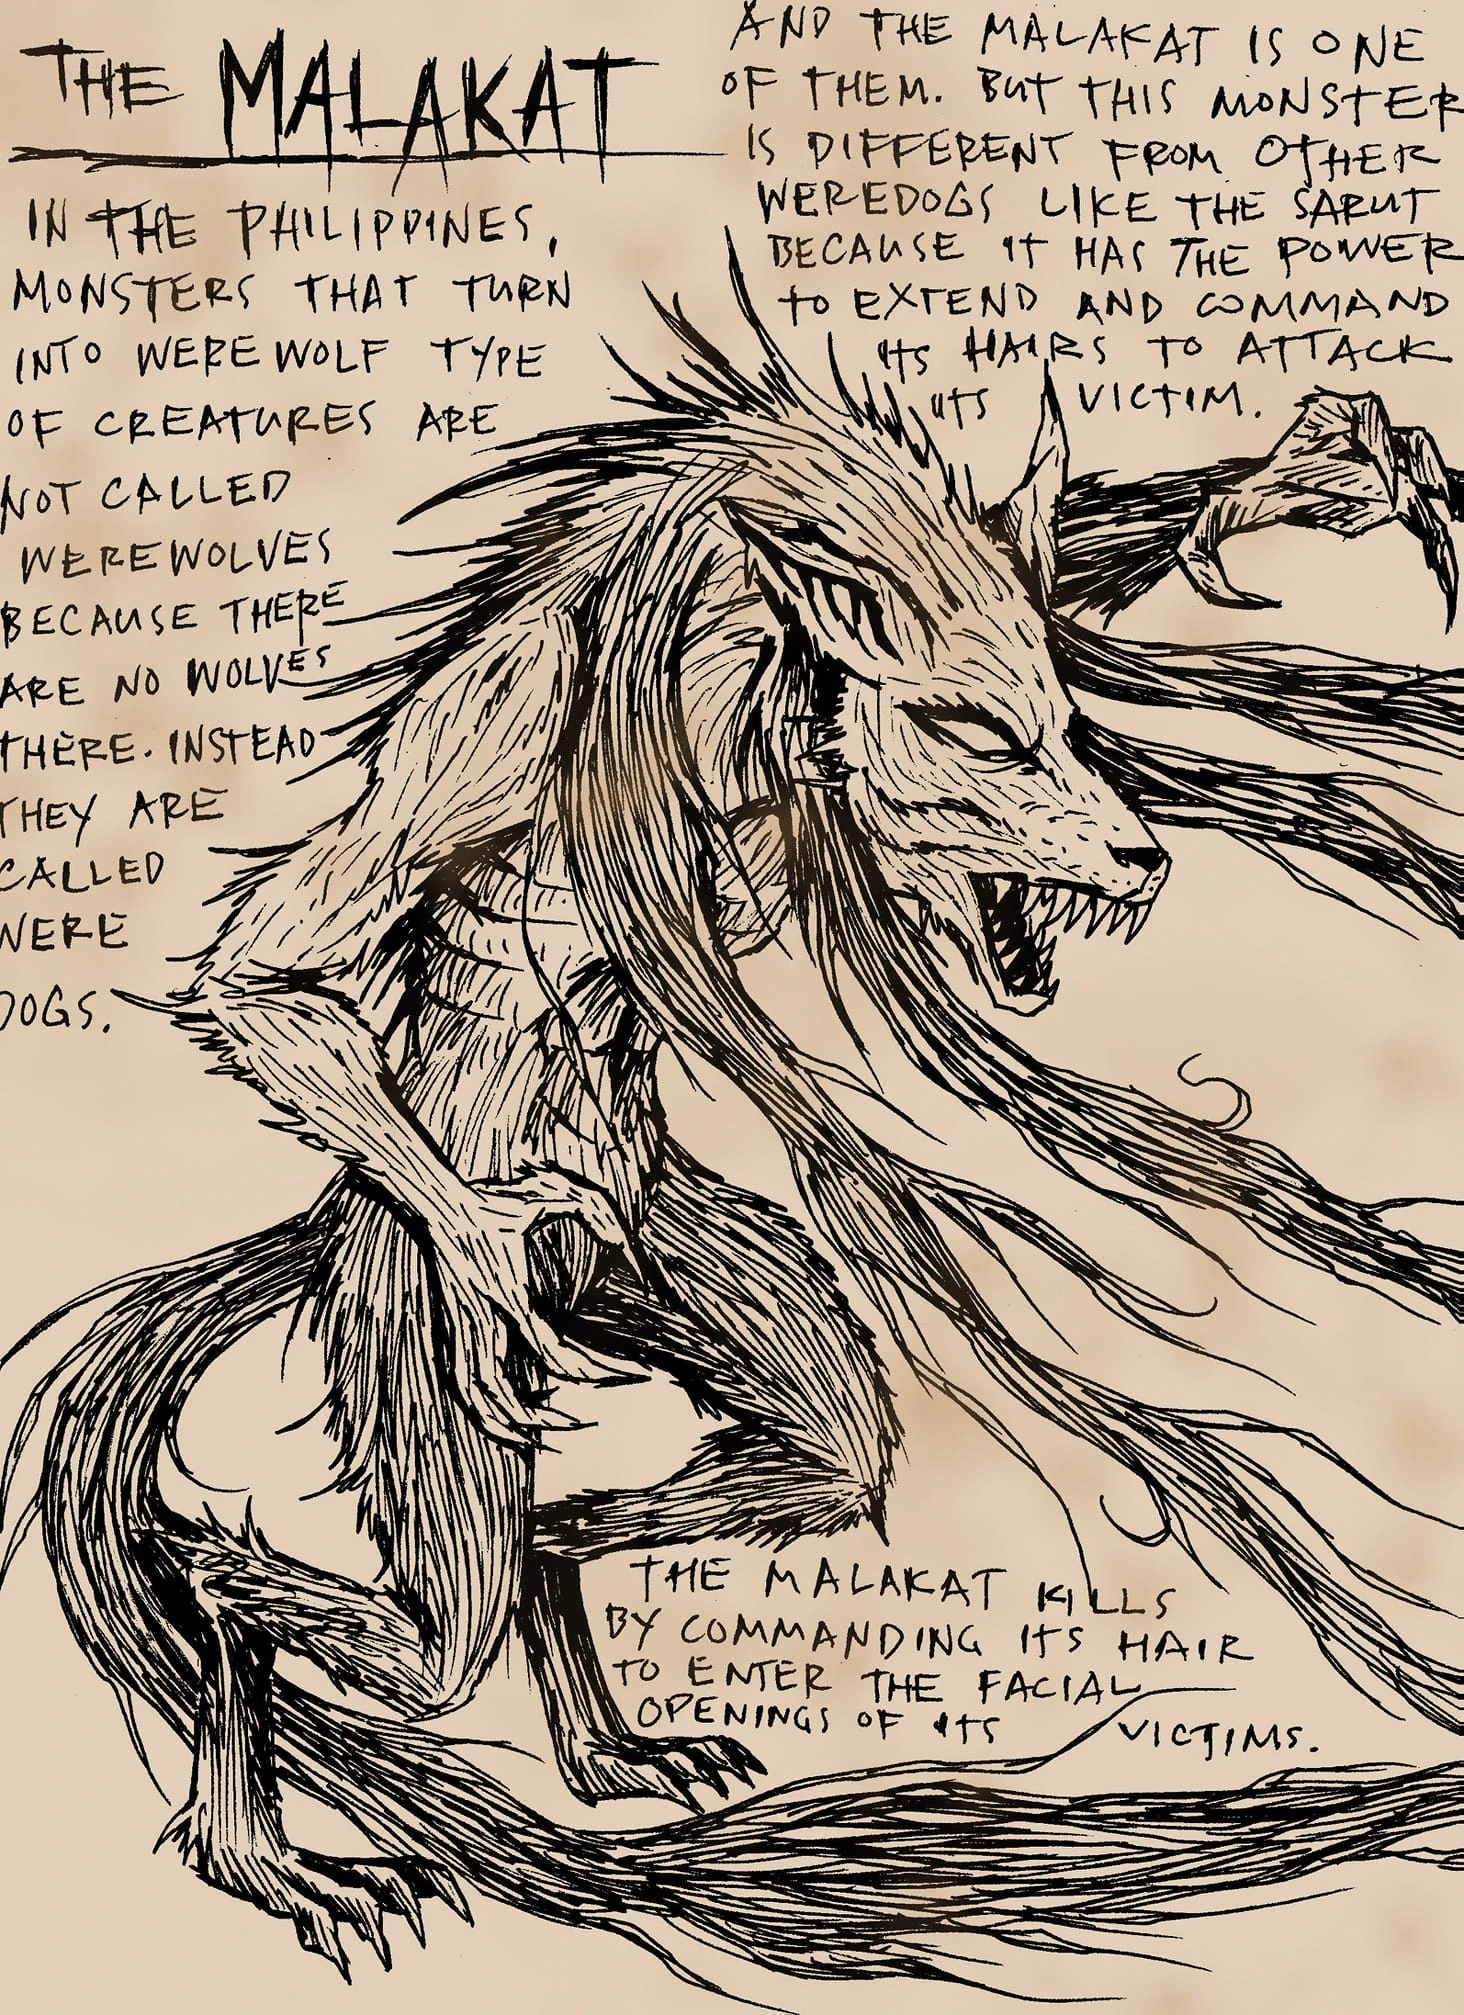 THE MALAKAT
IN THE PHILIPPINES,
MONSTERS THAT TURN
INTO WEREWOLF TYPE
OF CREATURES ARE
NOT CALLED
WEREWOLVES
BECAUSE THERE
ARE NO WOLVES
THERE. INSTEAD
THEY ARE
CALLED
WERE
DOGS.
AND THE MALAKAT IS ONE
OF THEM. BUT THIS MONSTER
IS DIFFERENT FROM OTHER
WEREDOGS LIKE THE SARUT
BECAUSE IT HAS THE POWER
TO EXTEND AND COMMAND
ITS HAIRS TO ATTACK
ITS VICTIM.
THE MALAKAT KILLS
BY COMMANDING ITS HAIR
TO ENTER THE FACIAL
OPENINGS OF ITS VICTIMS.